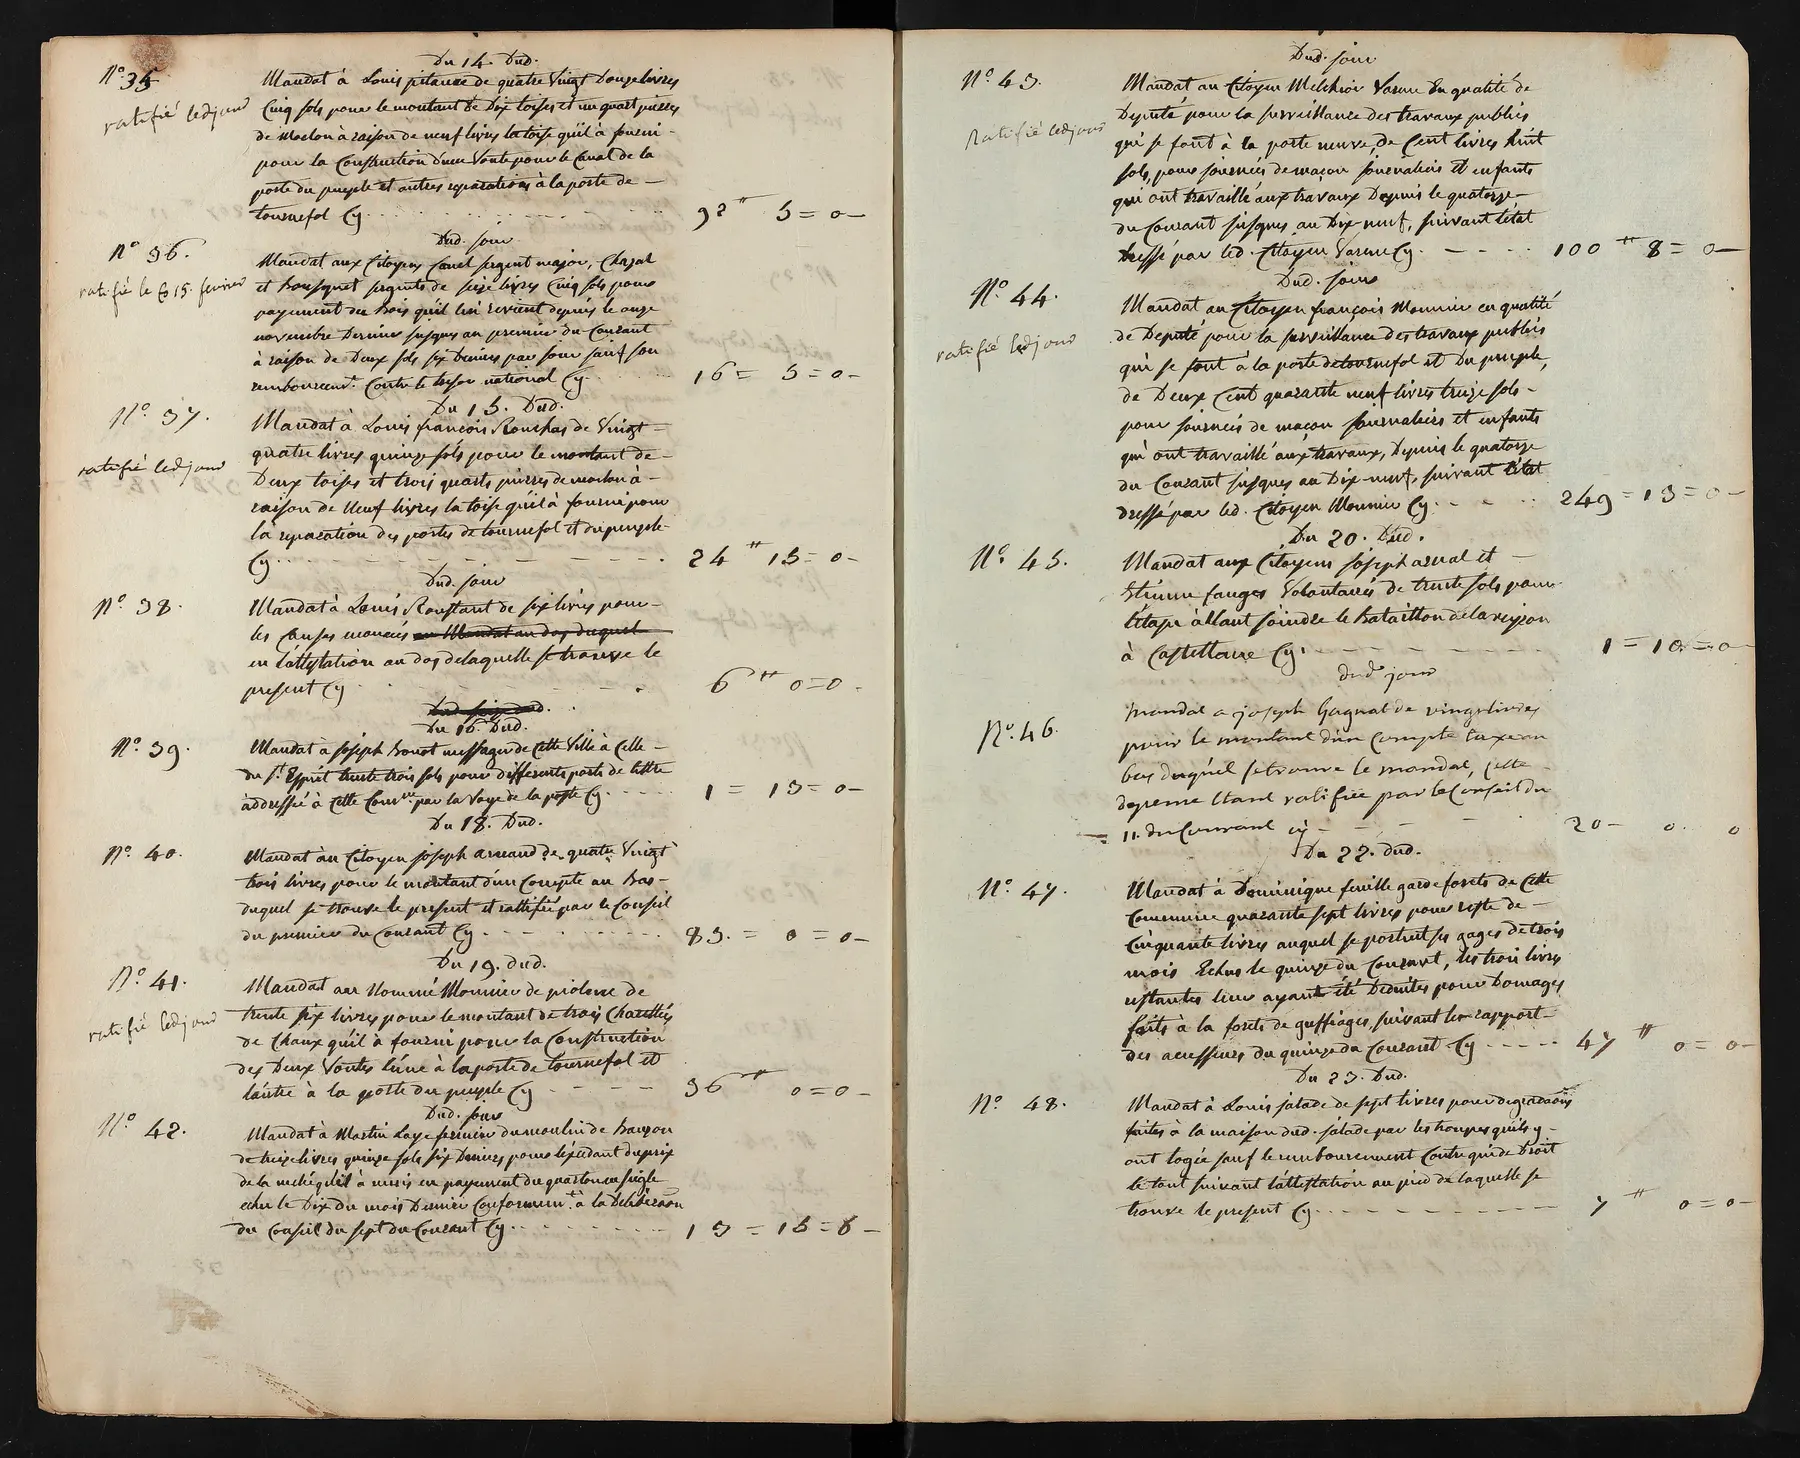 Du 14. Dud.
N.° 35
ratifié ledjour
Mandat à Louis pitauze de quatre Vingt Douze livres
Cinq sols pour le montant de Dix toises et un quart pierres
de Moelon à raison de neuf livres la toise qu'il à fourni -
pour la Construction d'une Voute pour le Canal de la
porte du peuple et autres reparations à la porte de -
tournefol Cy 92 ⁺⁺ 5 = 0 -
Dud. jour
N.° 36.
ratifié le 15. fevrier
Mandat aux Citoyens Canel sergent major, Chazal
et bousquet sergents de seize livres Cinq sols pour
payement du bois qu'il leur revient depuis le onze
novembre Dernier jusques au premier du Courant
à raison de Deux sols six Deniers par jour sauf son
remboursem.t Contre le tresor national Cy 16 = 5 = 0 -
Du 15. Dud.
N.° 37.
ratifié ledjour
Mandat à Louis françois Rouchas de Vingt -
quatre livres quinze sols pour le montant de -
Deux toises et trois quarts pierres de moelon à -
raison de Neuf livres la toise qu'il à fourni pour
la reparation des portes de tournefol et du peuple -
Cy 24 ⁺⁺ 15 = 0 -
Dud. jour
N.° 38.
Mandat à Louis Roustant de six livres pour -
les Causes enoncées au Mandat au dos duquel
en l'attestation au dos de laquelle se trouve le
present Cy 6 ⁺⁺ 0 = 0 -
Du 16. Dud.
N.° 39.
Mandat à joseph bonot messager de Cette Ville à Celle -
du S.t Esprit trente trois sols pour differents ports de lettre
addressée à Cette Comm.ne par la Voye de la poste Cy 1 = 13 = 0 -
Du 18. Dud.
N.° 40.
Mandat au Citoyen joseph arnaud de quatre Vingt
trois livres pour le montant d'un Compte au bas -
duquel se trouve le present et rattifié par le Conseil
du premier du Courant Cy 83. = 0 = 0 -
Du 19. dud.
N.° 41.
ratifié ledjour
Mandat au Nommé Monnier de piolenc de
trente six livres pour le montant de trois Charettées
de Chaux qu'il à fourni pour la Construction
des Deux Voutes l'une à la porte de tournefol et
l'autre à la porte du peuple Cy 36 ⁺⁺ 0 = 0 -
Dud. jour
N.° 42.
Mandat à Martin Laye fermier du moulin de bauzon
de treize livres quinze sols six Deniers pour l'exedant du prix
de la rente qu'il à mis en payement du quarton en seigle
echu le Dix du mois Dernier Conformem.t à la Deliberaon
du Conseil du sept du Courant Cy 13 = 15 = 6 -
Dud. jour
N.° 43.
Ratifié ledjour
Mandat au Citoyen Melchior Varene En qualité de
Deputé pour la surveillance des travaux publics
qui se font à la porte neuve, de Cent livres huit
sols, pour journées de maçon journaliers et enfants
qui ont travaillé aux travaux Depuis le quatorze -
du Courant jusques au Dix-neuf, suivant l'état
dressé par led. Citoyen Varene Cy. 100 ⁺⁺ 8 = 0 -
Dud. jour
N.° 44.
ratifié ledjour
Mandat au Citoyen françois Monnier en qualité
de Deputé pour la surveillance des travaux publics
qui se font à la porte de tournefol et du peuple,
de Deux Cent quarante neuf livres treize sols -
pour journées de maçon journaliers et enfants
qui ont travaillé aux travaux, Depuis le quatorze
du Courant jusques au Dix-neuf, suivant l'état
dressé par led. Citoyen Monnier Cy. 249 = 13 = 0 -
Du 20. Dud.
N.° 45.
Mandat aux Citoyens joseph arnal et -
Etienne fauges Volontaires de trente sols pour
l'étape allant joindre le bataillon de la region
à Castellane Cy. 1 = 10. = 0 -
dud.t jour
N.° 46.
Mandat a joseph Gagnat de vingt livres
pour le montant d'un Compte taxé au
bas duquel se trouve le mandat, cette
depense etant ratifiée par le Conseil du
11. du Courant cy - 20 - 0. 0
Du 22. dud.
N.° 47.
Mandat à Dominique feuille garde forets de Cette
Commune quarante sept livres pour reste de -
Cinquante livres auquel se portent ses gages de trois
mois Echus le quinze du Courant, les trois livres
restantes leur ayant été Deduites pour Domages
faits à la forets de guffiages, suivant le rapport -
des accesseurs du quinze du Courant Cy 47 ⁺⁺ 0 = 0 -
Du 23. Dud.
N.° 48.
Mandat à Louis salade de sept livres pour degradaons
faites à la maison dud. salade par les troupes qu'ils y -
ont logée sauf le remboursement Contre qui de Droit
le tout suivant l'attestation au pied de laquelle se
trouve le present Cy 7 ⁺⁺ 0 = 0 -